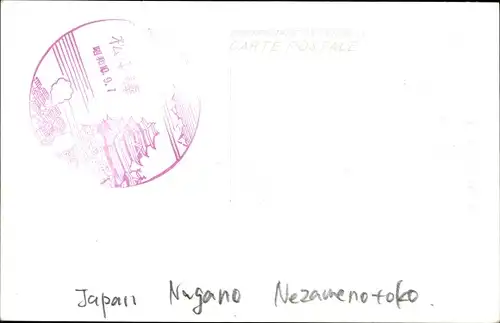 CARTE POSTALE
昭和12.9.7
Japan Nagano Nezamenotoko.